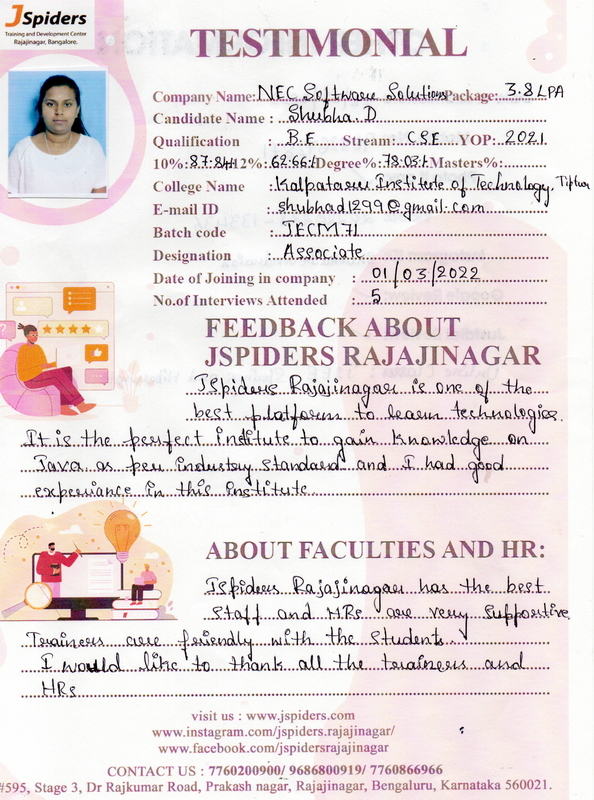 JSpiders
Training and Development Center
Rajajinagar, Bangalore.
TESTIMONIAL
Company Name: NEC Software Solutions Package: 3.8 LPA
Candidate Name : Shubha.D
Qualification : B.E Stream: CSE YOP: 2021
10%: 87.84% 12%: 62.66% Degree%: 78.03% Masters%:
College Name : Kalpataru Institute of Technology, Tiptur
E-mail ID : shubhad1299@gmail.com
Batch code : JECM71
Designation : Associate
Date of Joining in company : 01/03/2022
No.of Interviews Attended : 5
FEEDBACK ABOUT
JSPIDERS RAJAJINAGAR
JSpiders Rajajinagar is one of the
best platform to learn technologies.
It is the perfect institute to gain knowledge on
Java as per industry standard and I had good
experiance in this institute.
ABOUT FACULTIES AND HR:
JSpiders Rajajinagar has the best
staff and HRs are very supportive
Trainers are friendly with the students.
I would like to thank all the trainers and
HRs
visit us : www.jspiders.com
www.instagram.com/jspiders.rajajinagar/
www.facebook.com/jspidersrajajinagar
CONTACT US : 7760200900/ 9686800919/ 7760866966
#595, Stage 3, Dr Rajkumar Road, Prakash nagar, Rajajinagar, Bengaluru, Karnataka 560021.